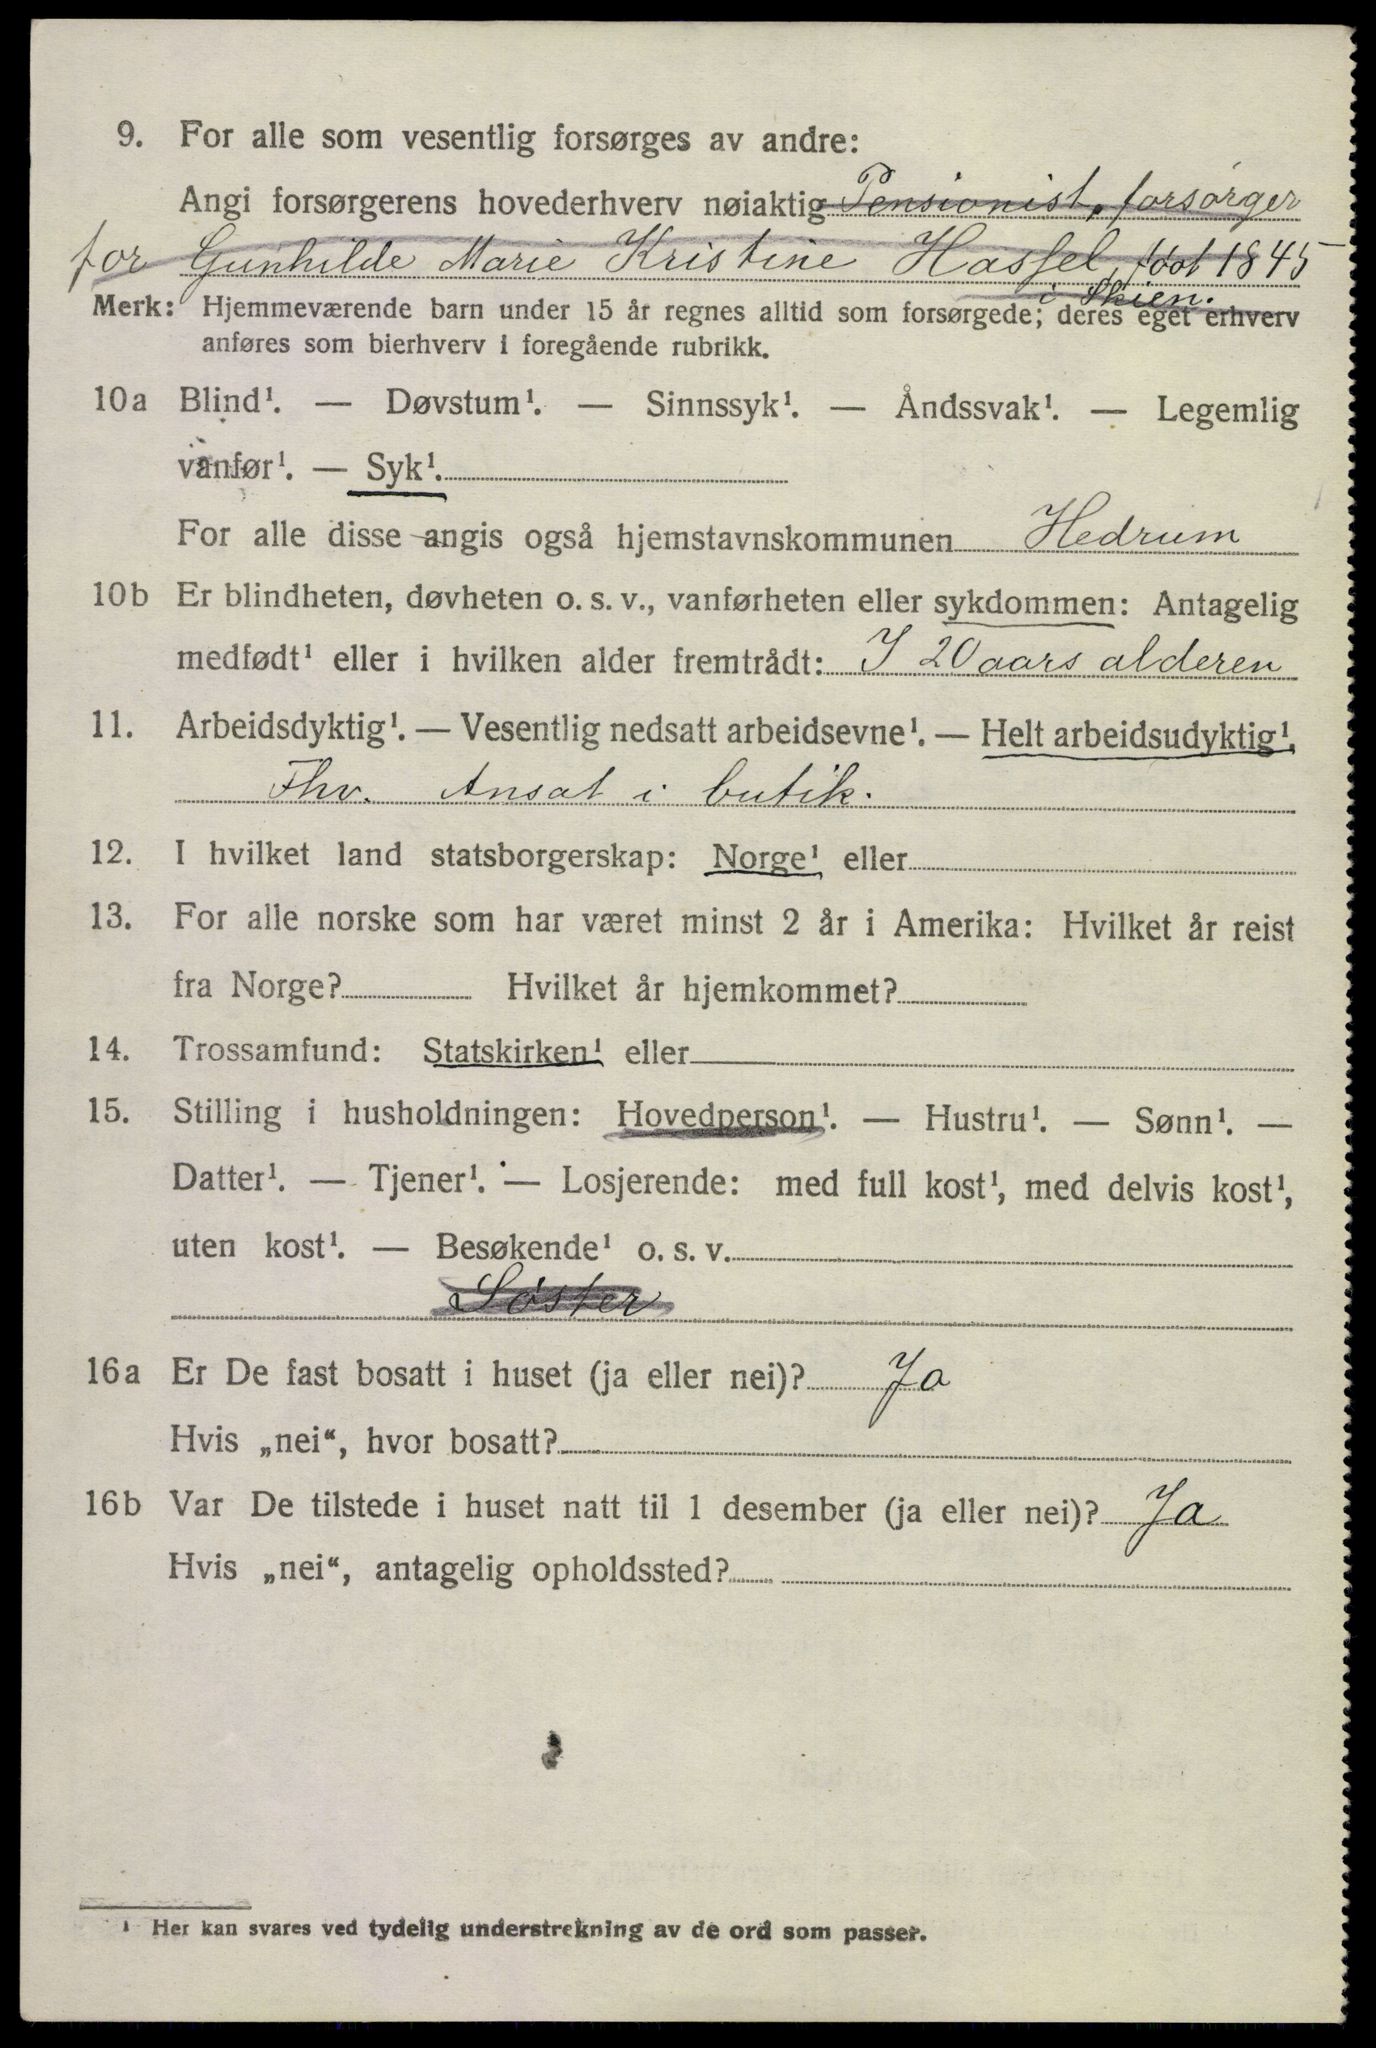 9. For alle som vesentlig forsørges av andre:
Angi forsørgerens hovederhverv nøiaktig Pensionist, forsørger
for Gunhilde Marie Kristine Hassel, født 1845
i Skien.
Merk: Hjemmeværende barn under 15 år regnes alltid som forsørgede; deres eget erhverv
anføres som bierhverv i foregående rubrikk.
10a Blind¹. — Døvstum¹. — Sinnssyk¹. — Åndssvak¹. — Legemlig
vanfør¹. — Syk¹.
For alle disse angis også hjemstavnskommunen Hedrum
10b Er blindheten, døvheten o. s. v., vanførheten eller sykdommen: Antagelig
medfødt¹ eller i hvilken alder fremtrådt: I 20 aars alderen
11. Arbeidsdyktig¹. — Vesentlig nedsatt arbeidsevne¹. — Helt arbeidsudyktig¹.
Fhv. Ansat i butik.
12. I hvilket land statsborgerskap: Norge¹ eller
13. For alle norske som har været minst 2 år i Amerika: Hvilket år reist
fra Norge? Hvilket år hjemkommet?
14. Trossamfund: Statskirken¹ eller
15. Stilling i husholdningen: Hovedperson¹. — Hustru¹. — Sønn¹. —
Datter¹. — Tjener¹. — Losjerende: med full kost¹, med delvis kost¹,
uten kost¹. — Besøkende¹ o. s. v.
Søster
16a Er De fast bosatt i huset (ja eller nei)? Ja
Hvis „nei“, hvor bosatt?
16b Var De tilstede i huset natt til 1 desember (ja eller nei)? Ja
Hvis „nei“, antagelig opholdssted?
¹ Her kan svares ved tydelig understrekning av de ord som passer.